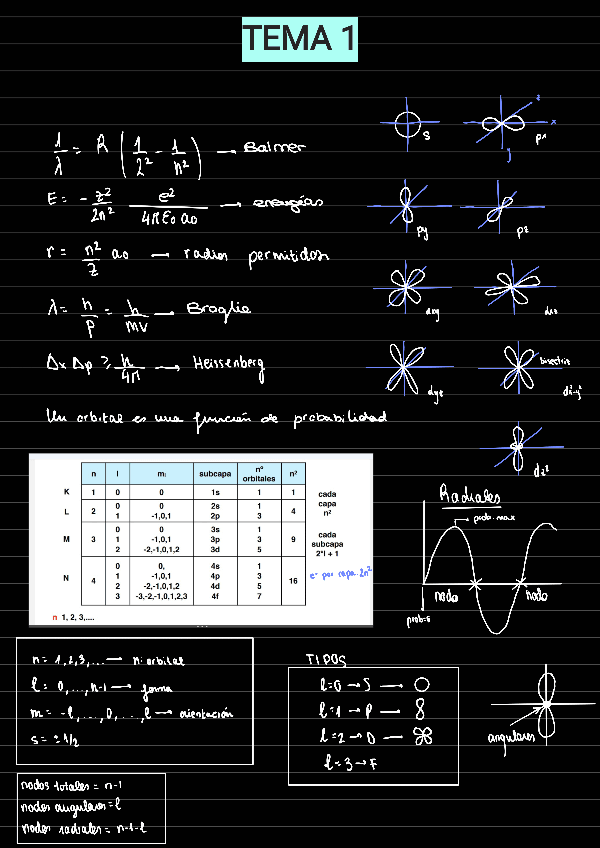 TEMA 1
1/λ = R (1/2² - 1/n²) → Balmer
E = - z²/2n² e²/4πε₀a₀ → energías
r = n²/z a₀ → radios permitidos
λ = h/p = h/mv → Broglie
Δx Δp ≥ h/4π → Heissenberg
Un orbital es una función de probabilidad
s
z
x
y
px
py
pz
dxy
dxz
dyz
bisectriz
dx²-y²
dz²
n l mₗ subcapa nº orbitales n²
K 1 0 0 1s 1 1
L 2 0 0 2s 1 4
1 -1,0,1 2p 3
M 3 0 0 3s 1 9
1 -1,0,1 3p 3
2 -2,-1,0,1,2 3d 5
N 4 0 0, 4s 1 16
1 -1,0,1 4p 3
2 -2,-1,0,1,2 4d 5
3 -3,-2,-1,0,1,2,3 4f 7
cada
capa
n²
cada
subcapa
2*l + 1
e⁻ por capa 2n²
n 1, 2, 3,....
Radiales
prob. max
nodo
nodo
n = 1,2,3,... → n: orbital
l = 0,...,n-1 → forma
m = -l,...,0,...,l → orientación
s = ±1/2
TIPOS
l=0 → S →
l=1 → P →
l=2 → D →
l=3 → F
angulares
nodos totales = n-1
nodos angulares = l
nodos radiales = n-1-l